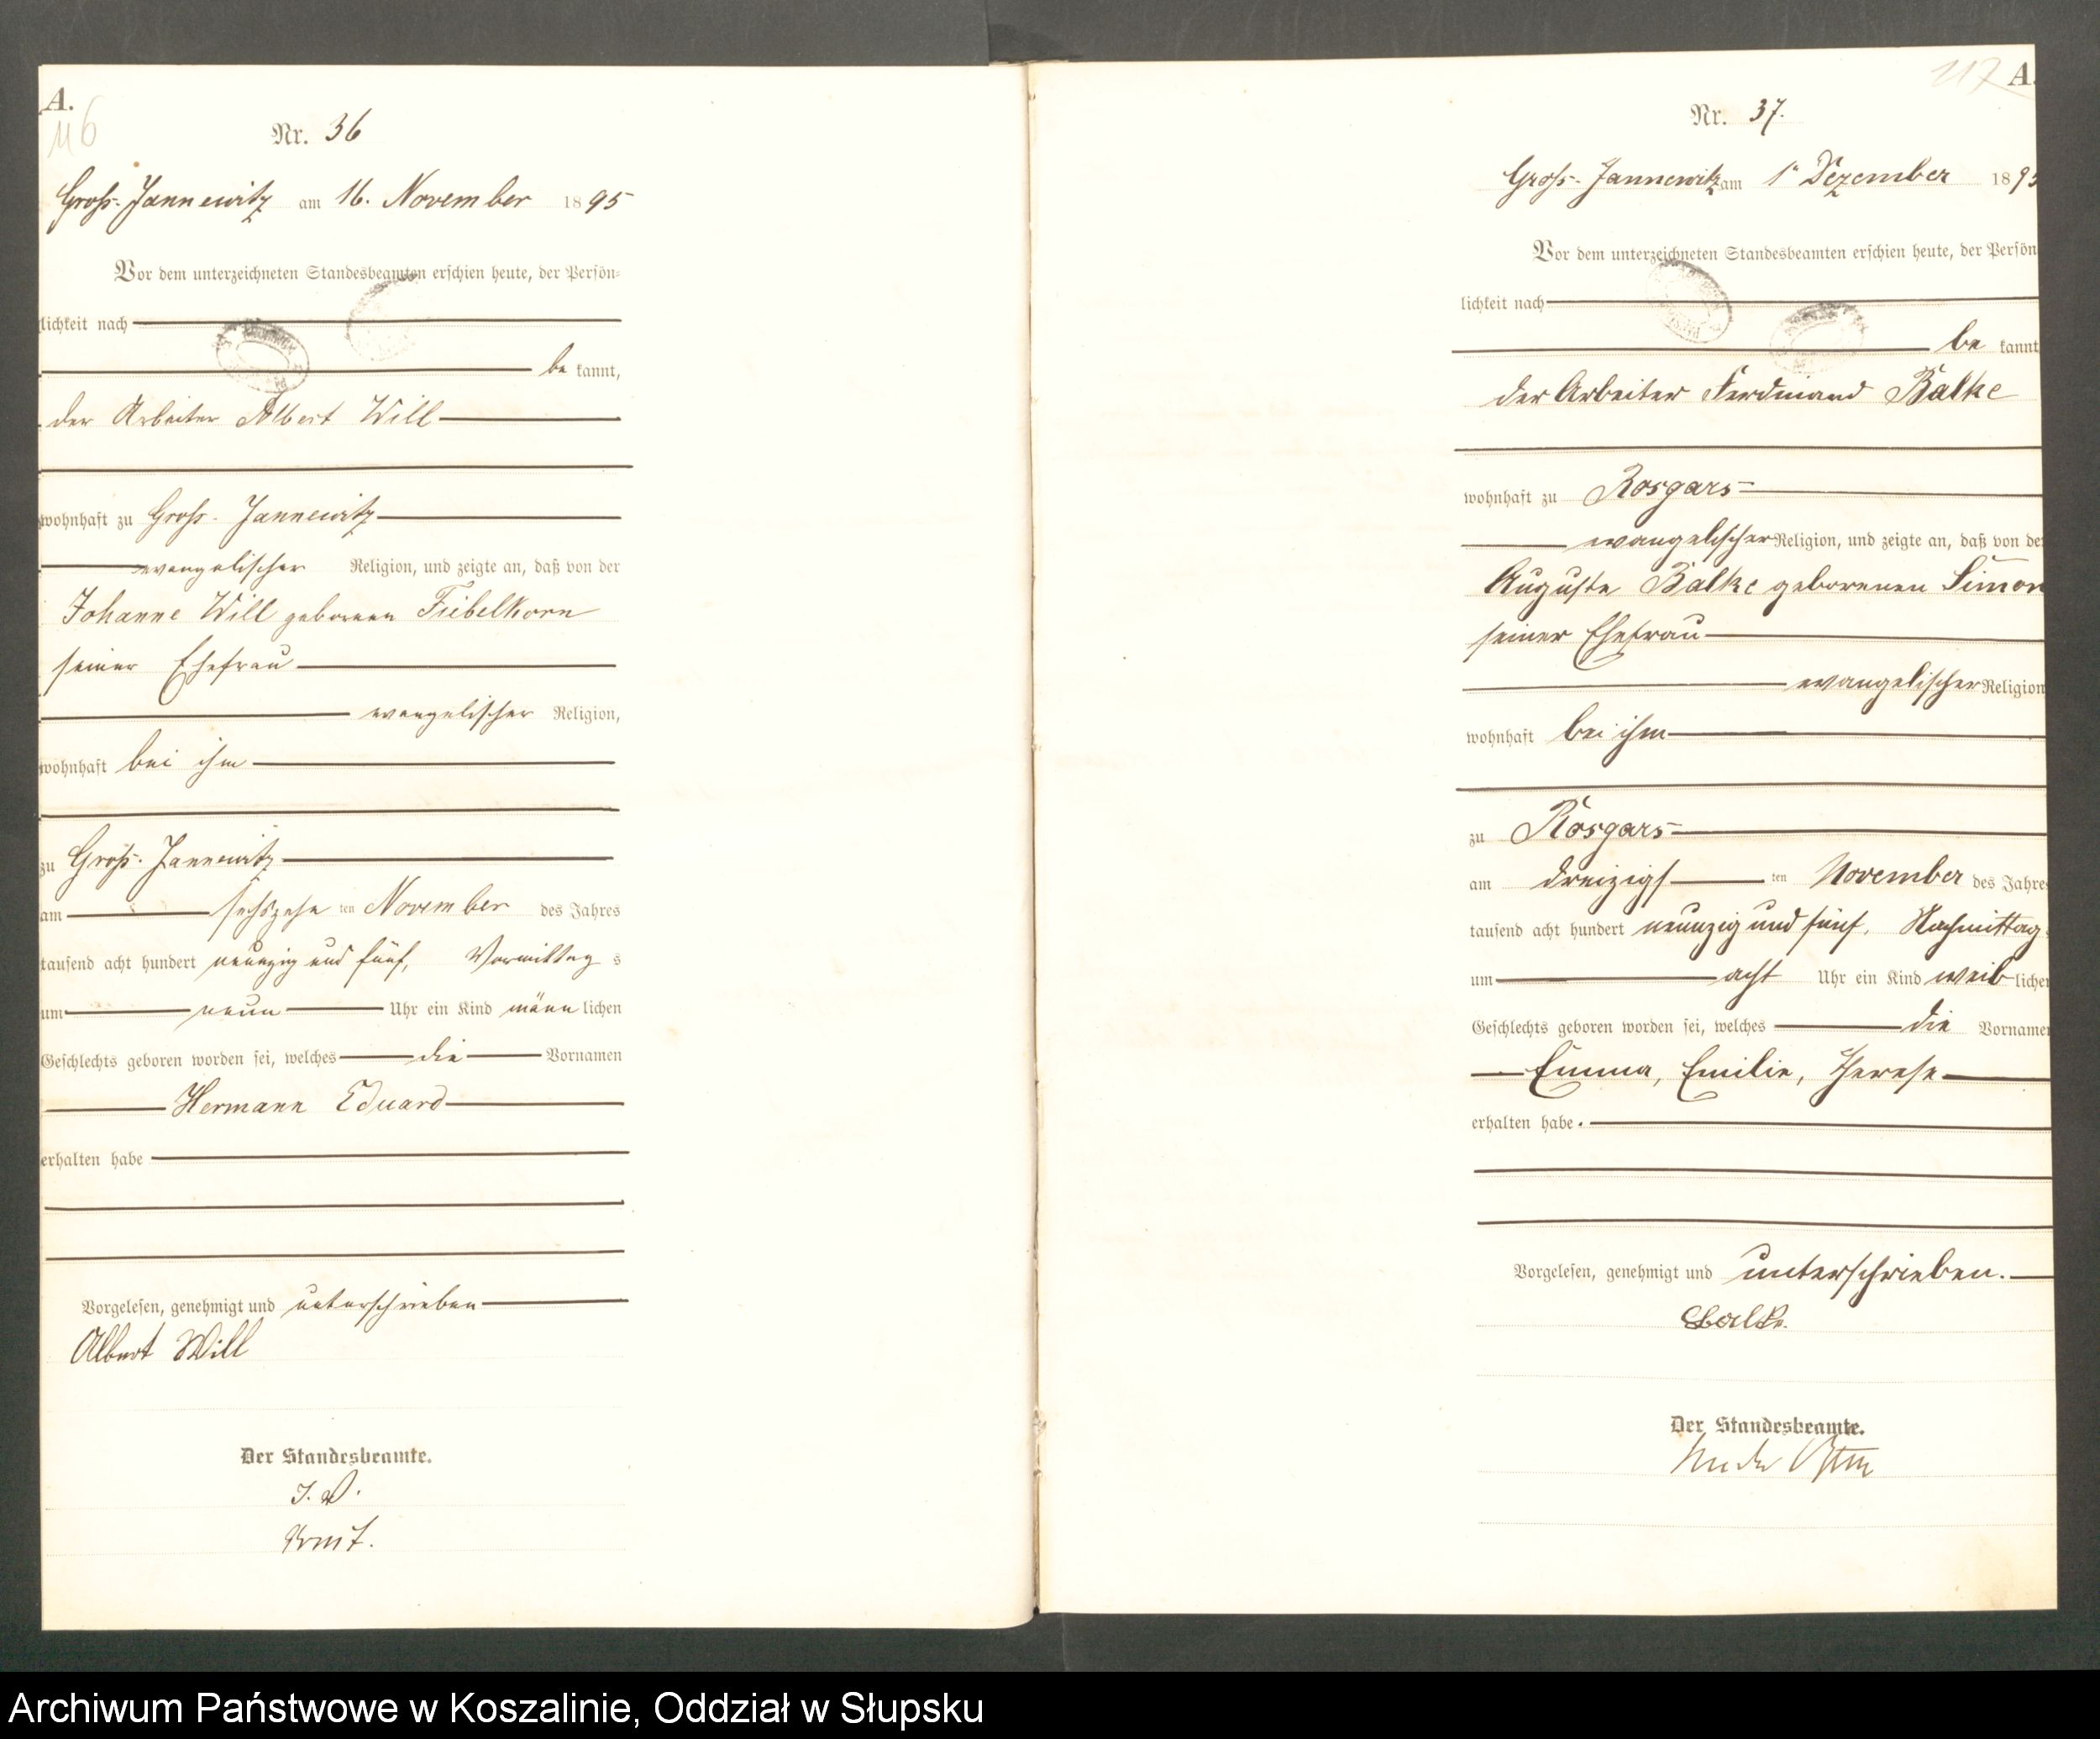 A.
116
Nr. 36
Groß-Jannewitz am 16. November 1895
Vor dem unterzeichneten Standesbeamten erschien heute, der Persön-
lichkeit nach
be kannt,
der Arbeiter Albert Will
wohnhaft zu Groß-Jannewitz
evangelischer Religion, und zeigte an, daß von der
Johanne Will geborenen Fiebelkorn
seiner Ehefrau
evangelischer Religion,
wohnhaft bei ihm
zu Groß-Jannewitz
am sechszehn ten November des Jahres
tausend acht hundert neunzig und fünf, Vormittag s
um neun Uhr ein Kind männ lichen
Geschlechts geboren worden sei, welches die Vornamen
Hermann Eduard
erhalten habe
Vorgelesen, genehmigt und unterschrieben
Albert Will
Der Standesbeamte.
I. V.
117 A.
Nr. 37.
Groß-Jannewitz am 1n Dezember 1895
Vor dem unterzeichneten Standesbeamten erschien heute, der Persön
lichkeit nach
be kannt
der Arbeiter Ferdinand Balke
wohnhaft zu Rosgars
evangelischer Religion, und zeigte an, daß von de
Auguste Balke geborenen Simon
seiner Ehefrau
evangelischer Religion
wohnhaft bei ihm
zu Rosgars
am dreizigs ten November des Jahres
tausend acht hundert neunzig und fünf, Nachmittag
um acht Uhr ein Kind weib liche
Geschlechts geboren worden sei, welches die Vorname
Emma, Emilie, Therese
erhalten habe.
Vorgelesen, genehmigt und unterschrieben.
Balke.
Der Standesbeamte.
Archiwum Państwowe w Koszalinie, Oddział w Słupsku